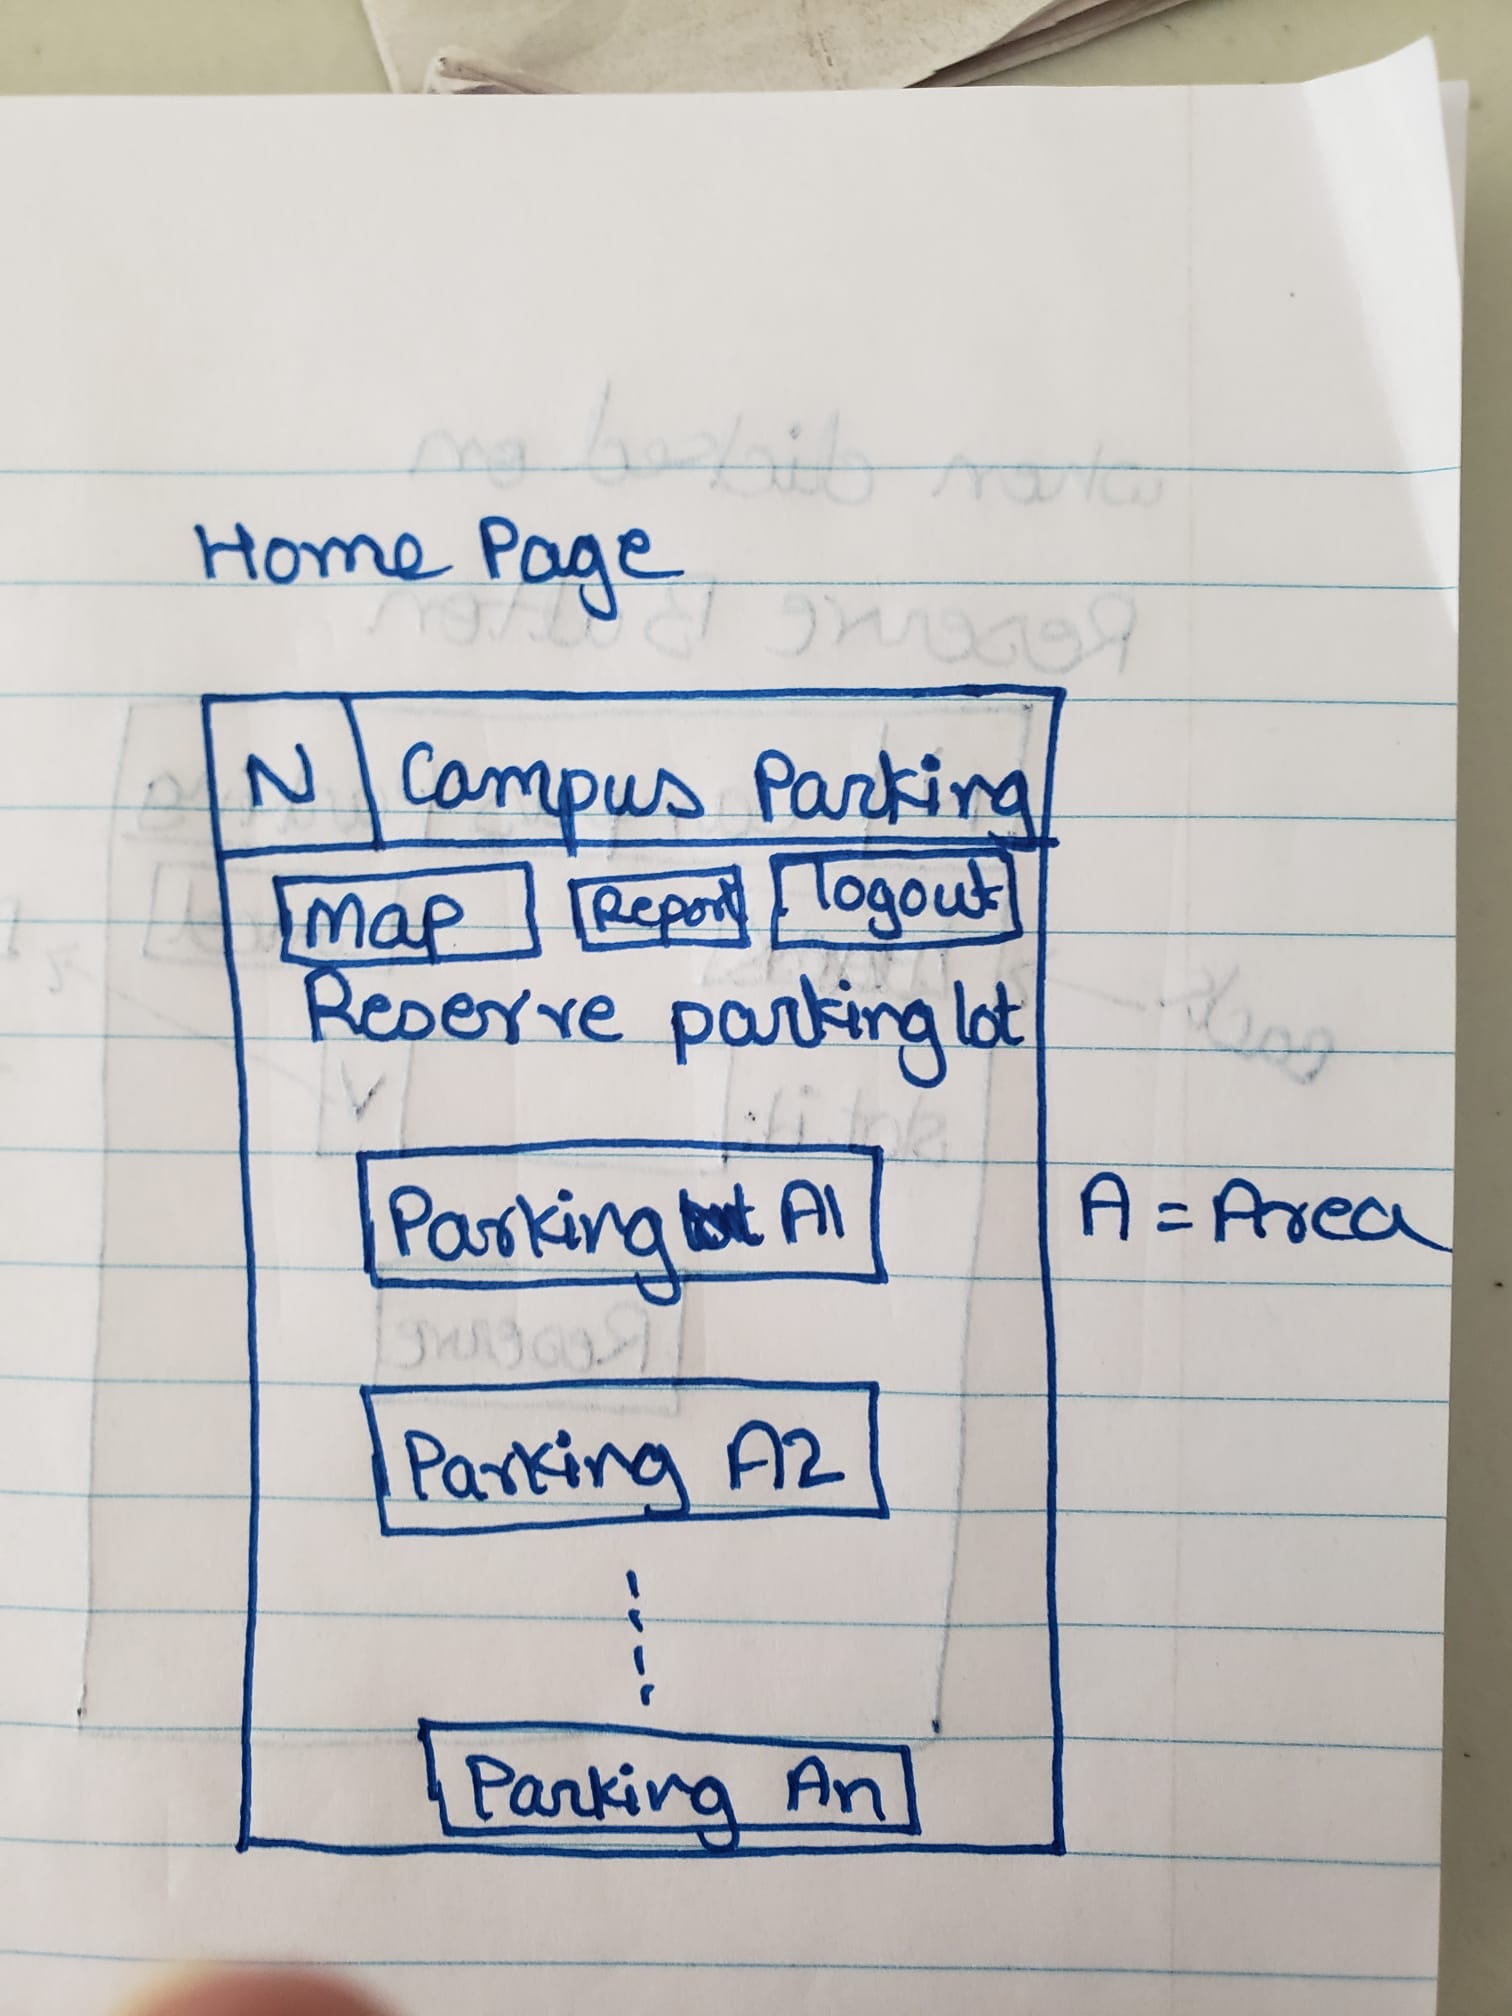 Home Page
N Campus Parking
Map Report logout
Reserve parking lot
Parking lot A1 A = Area
Parking A2
Parking An